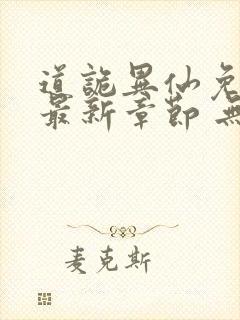 道詭異仙免
最新章節 無
麦克斯